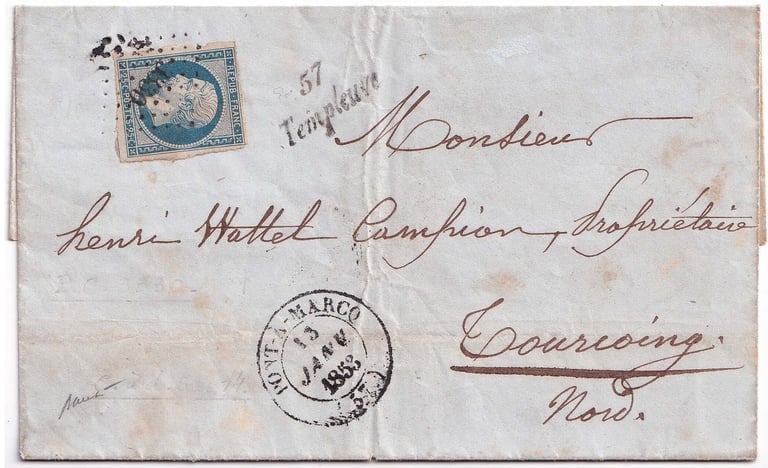 REPUB. FRANC.
25 C. POSTES 25 C.
57
Templeuve
Monsieur
henri Wattel Campion, Propriétaire
Tourcoing.
Nord.
PONT-A-MARCQ
13
JANV
1853
(57)